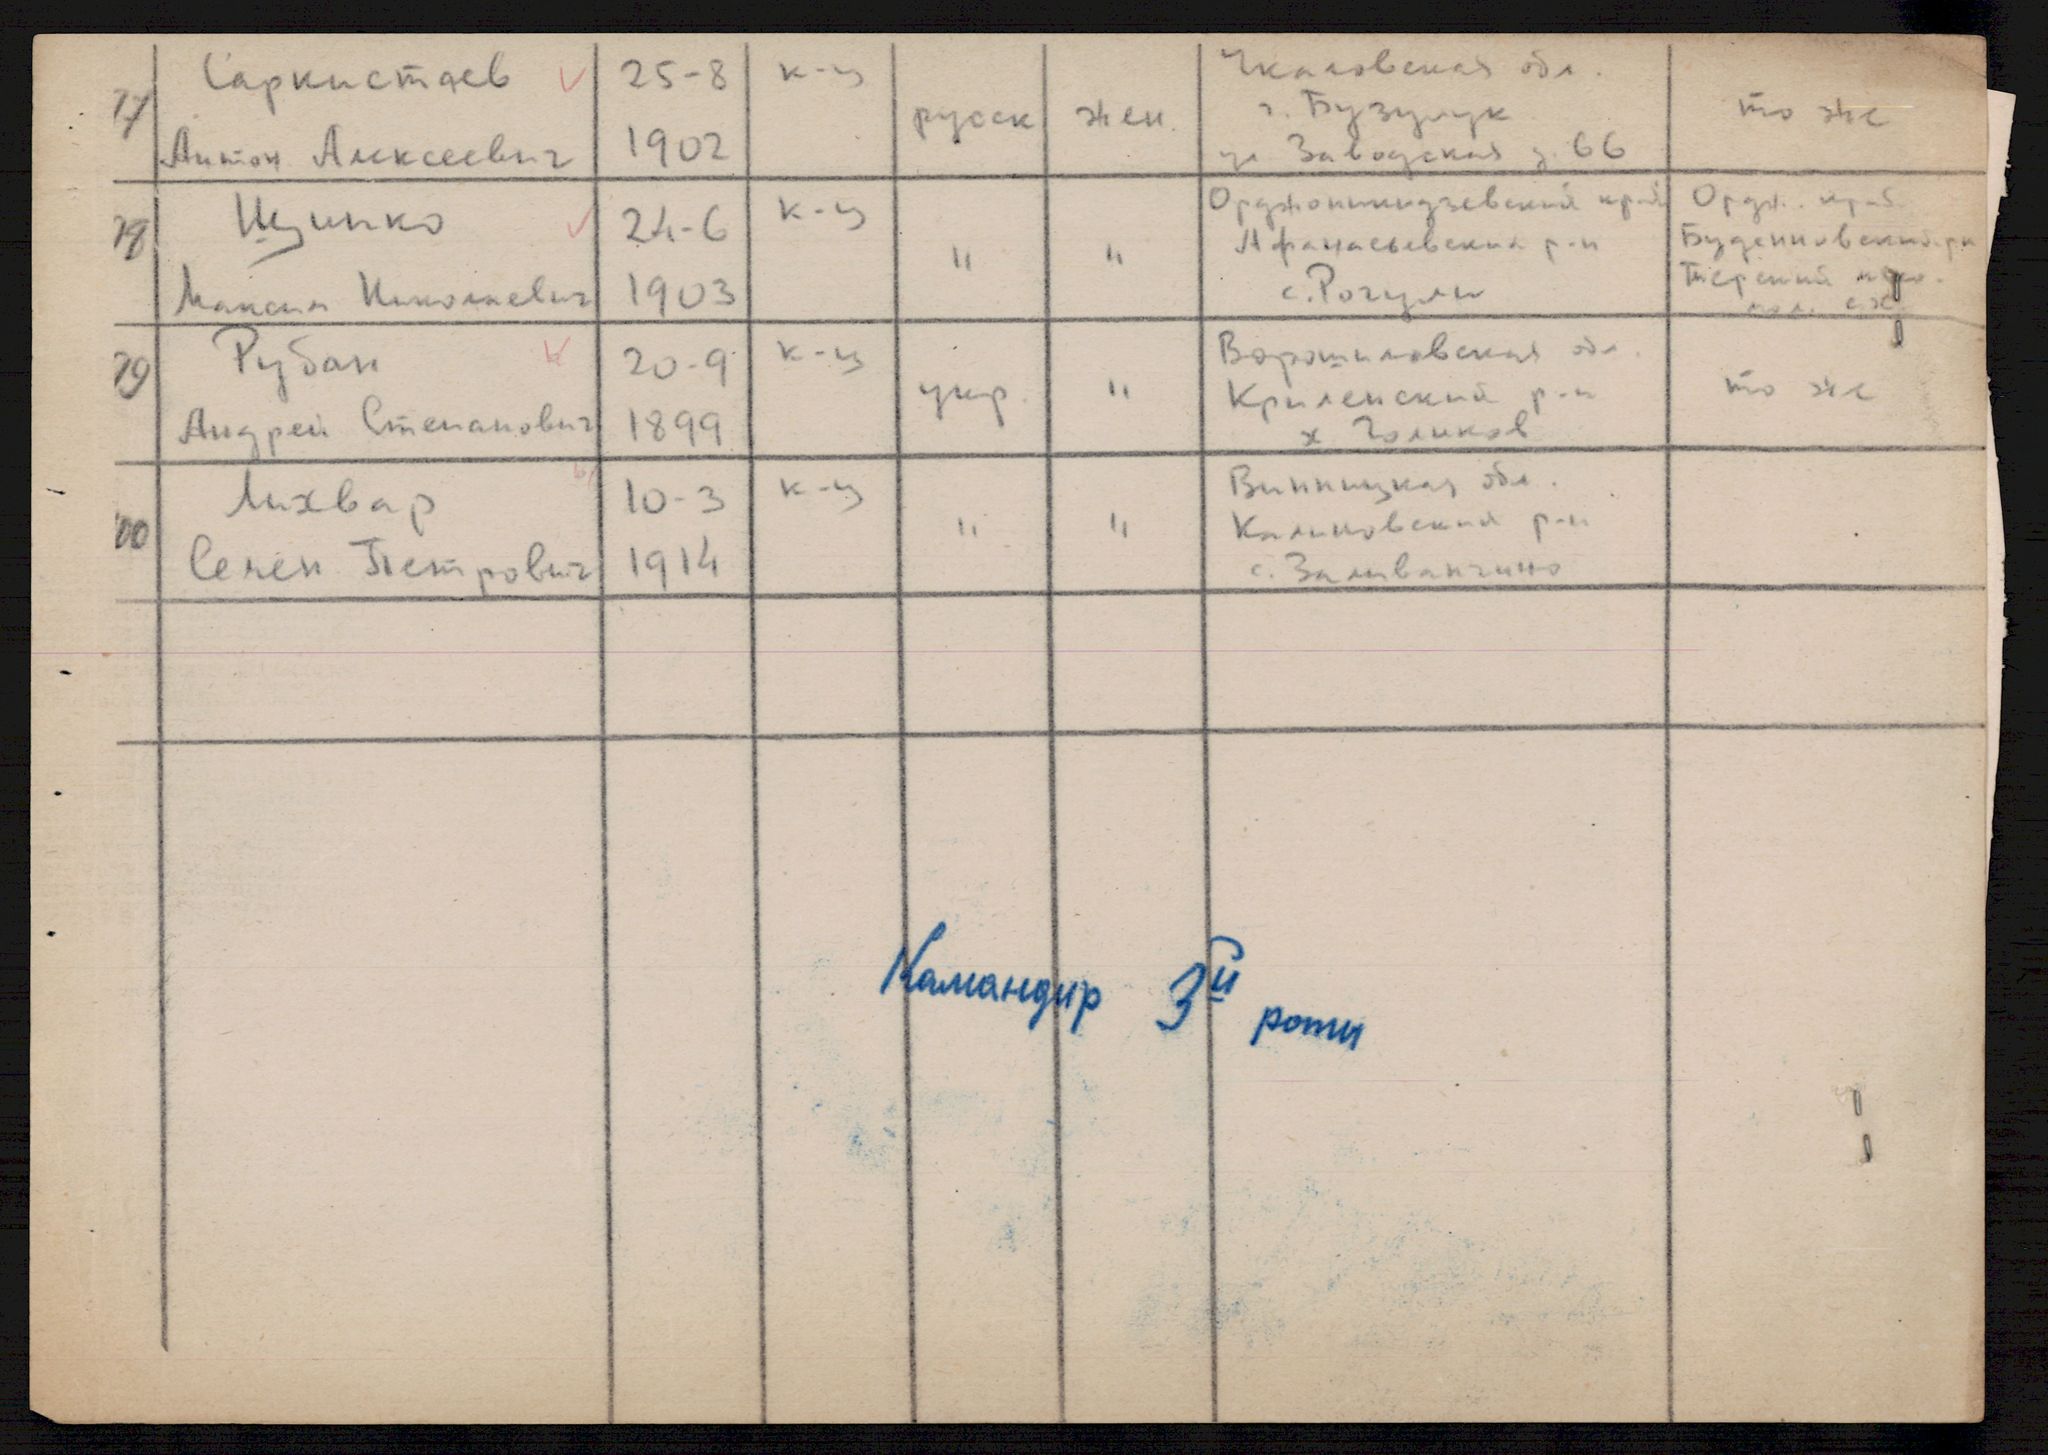 Саркистаев 25-8 к-ц Чкаловская обл.
77 русск жен. г. Бузулук то же
Антон Алексеевич 1902 ул Заводская д. 66
Щипко 24-6 к-ц Орджоникидзевский край Ордж. край
78 " " Афанасьевский р-н Буденновский р-н
Максим Николаевич 1903 с. Рогули Терский
Рубан 20-9 к-ц Ворошиловская обл.
79 укр. " Криленский р-н то же
Андрей Степанович 1899 х Голиков
Лихвар 10-3 к-ц Винницкая обл.
00 " " Калиновский р-н
Семен Петрович 1914 с. Заливанчино
Камандир 3й роти